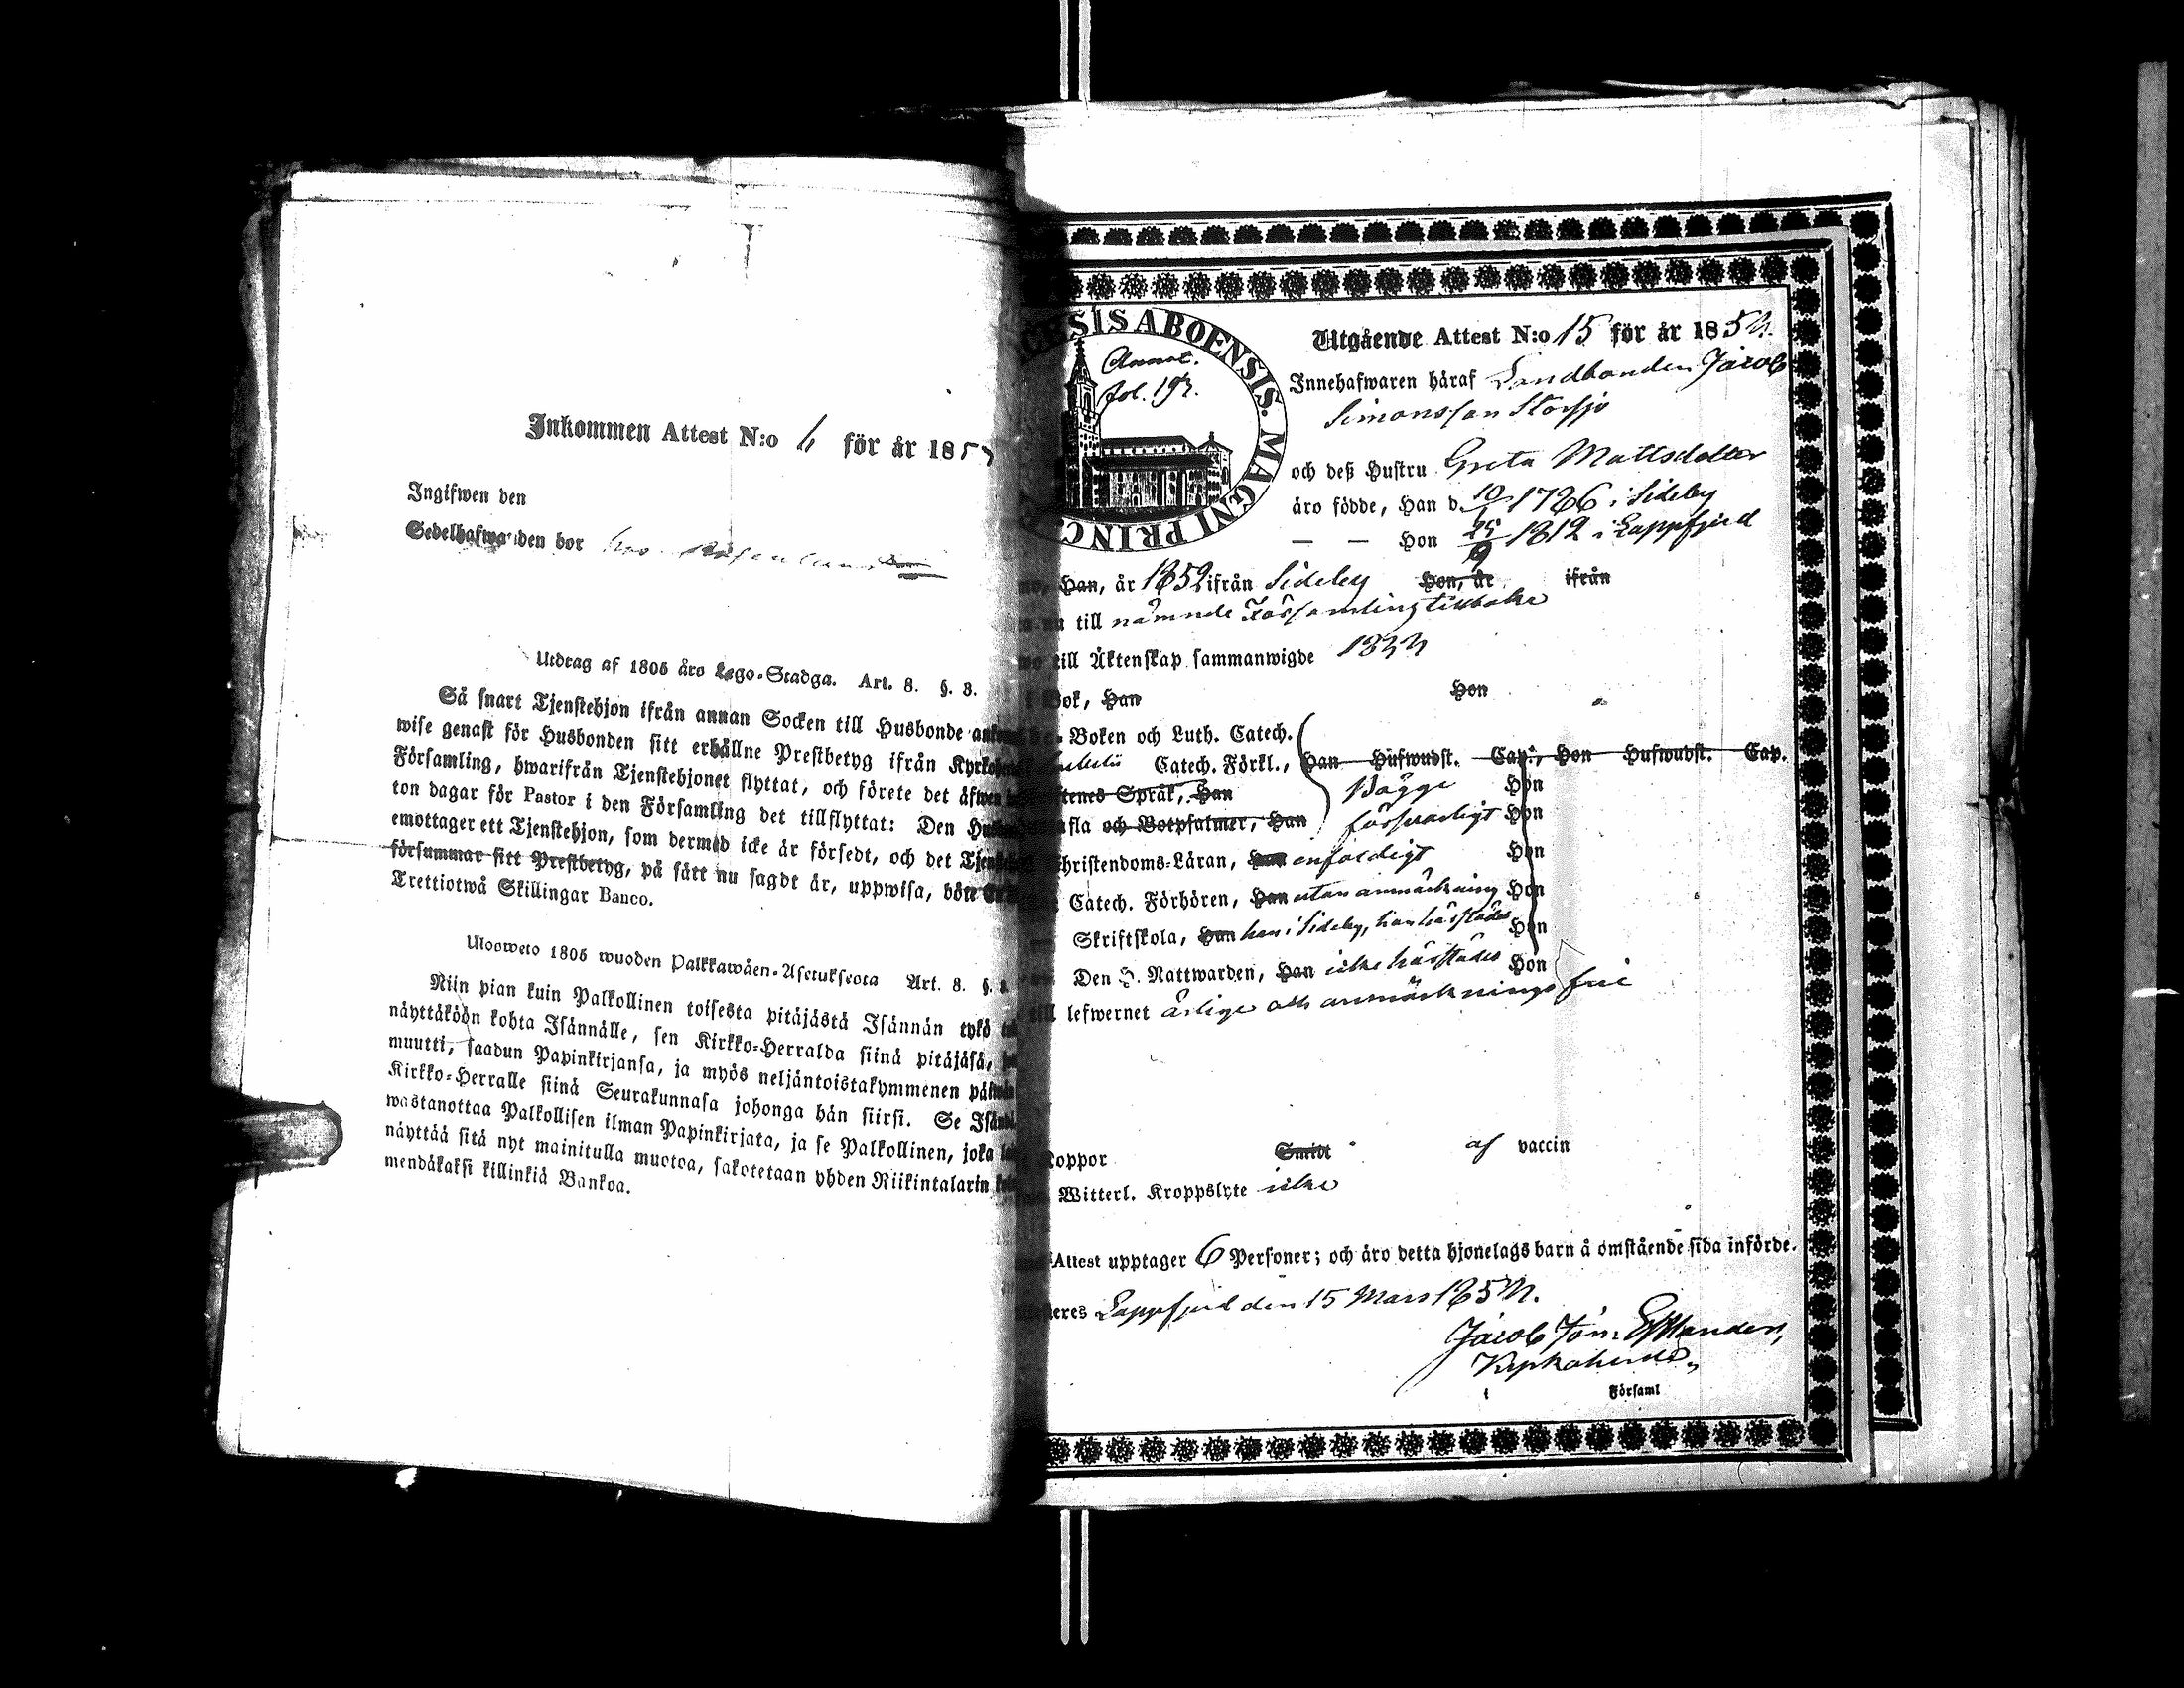 Inkommen Attest N:o för år 185
Ingifwen den
Sedelhafwanden bor hos
Utdrag af 1805 åro Lego-Stadga. Art. 8. §. 3.
Så snart Tjenstehjon ifrån annan Socken till Husbonde
wise genast för Husbonden sitt erhållne Prestbetyg ifrån
Församling, hwarifrån Tjenstehjonet flyttat, och förete det äfwen
ton dagar för Pastor i den Församling det tillflyttat: Den
emottager ett Tjenstehjon, som dermed icke är försedt, och det
försummar sitt Prestbetyg, på sätt nu sagdt är, uppwisa, böte
Trettiotwå Skillingar Banco.
Ulosweto 1805 wuoden Palkkawäen-Asetuksesta Art. 8. §.
Niin pian kuin Palkollinen toisesta pitäjästä Isännän tykö
näyttäköön kohta Isännälle, sen Kirkko-Herralda siinä pitäjäsä,
muutti, saadun Papinkirjansa, ja myös neljäntoistakymmenen
Kirkko-Herralle siinä Seurakunnasa johonga hän siirsi. Se
wastanottaa Palkollisen ilman Papinkirjata, ja se Palkollinen, joka
näyttää sitä nyt mainitulla muotoa, sakotetaan yhden Riikintalarin
mendäkaksi killinkiä Bankoa.
SIS ABOENSIS. MAGNI PRINC
fol. 197.
Utgående Attest N:o 15 för år 1854.
Innehafwaren häraf Landbonden Jacob
Simonsson Storsjö
och deß Hustru Greta Mattsdotter
äro födde, Han d. 10/1 1786 i Sideby
— — Hon 25/9 1812 i Lappfjerd
Han, år 1852 ifrån Sideby Hon, år ifrån
nu till nämnde Församling tillbaka
till Äktenskap sammanwigde 1834
Bok, Han Hon
Boken och Luth. Catech.
Catech. Förkl., Han Hufwudst. Cap., Hon Hufwudst. Cap.
Språk, Han Bägge Hon
och Botpsalmer, Han försvarligt Hon
Christendoms-Läran, Han enfaldigt Hon
Catech. Förhören, Han utan anmärkning Hon
Skriftskola, Han han i Sideby, hon härstädes Hon
Den H. Nattwarden, Han icke härstädes Hon
till lefwernet ärlige och anmärkningsfrie
Koppor Smitt af vaccin
Witterl. Kroppslyte icke
Attest upptager 6 Personer; och äro detta hjonelags barn å omstående sida införde.
Lappfjerd den 15 Mars 1854.
Jacob Jon. Esslander,
Kyrkoherde,
i Församl